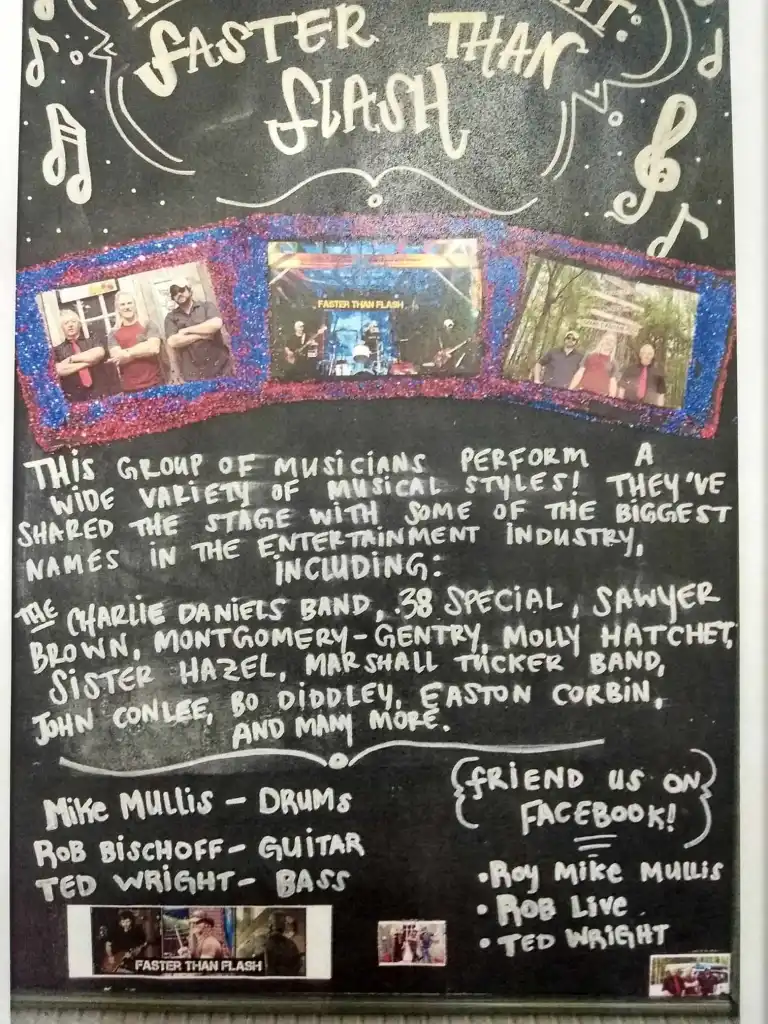 FASTER THAN
FLASH
FASTER THAN FLASH
THIS GROUP OF MUSICIANS PERFORM A
WIDE VARIETY OF MUSICAL STYLES! THEY'VE
SHARED THE STAGE WITH SOME OF THE BIGGEST
NAMES IN THE ENTERTAINMENT INDUSTRY,
INCLUDING:
THE CHARLIE DANIELS BAND, .38 SPECIAL, SAWYER
BROWN, MONTGOMERY-GENTRY, MOLLY HATCHET,
SISTER HAZEL, MARSHALL TUCKER BAND,
JOHN CONLEE, BO DIDDLEY, EASTON CORBIN,
AND MANY MORE.
MIKE MULLIS - DRUMS
ROB BISCHOFF - GUITAR
TED WRIGHT - BASS
FASTER THAN FLASH
{FRIEND US ON
FACEBOOK!}
• ROY MIKE MULLIS
• ROB LIVE
• TED WRIGHT